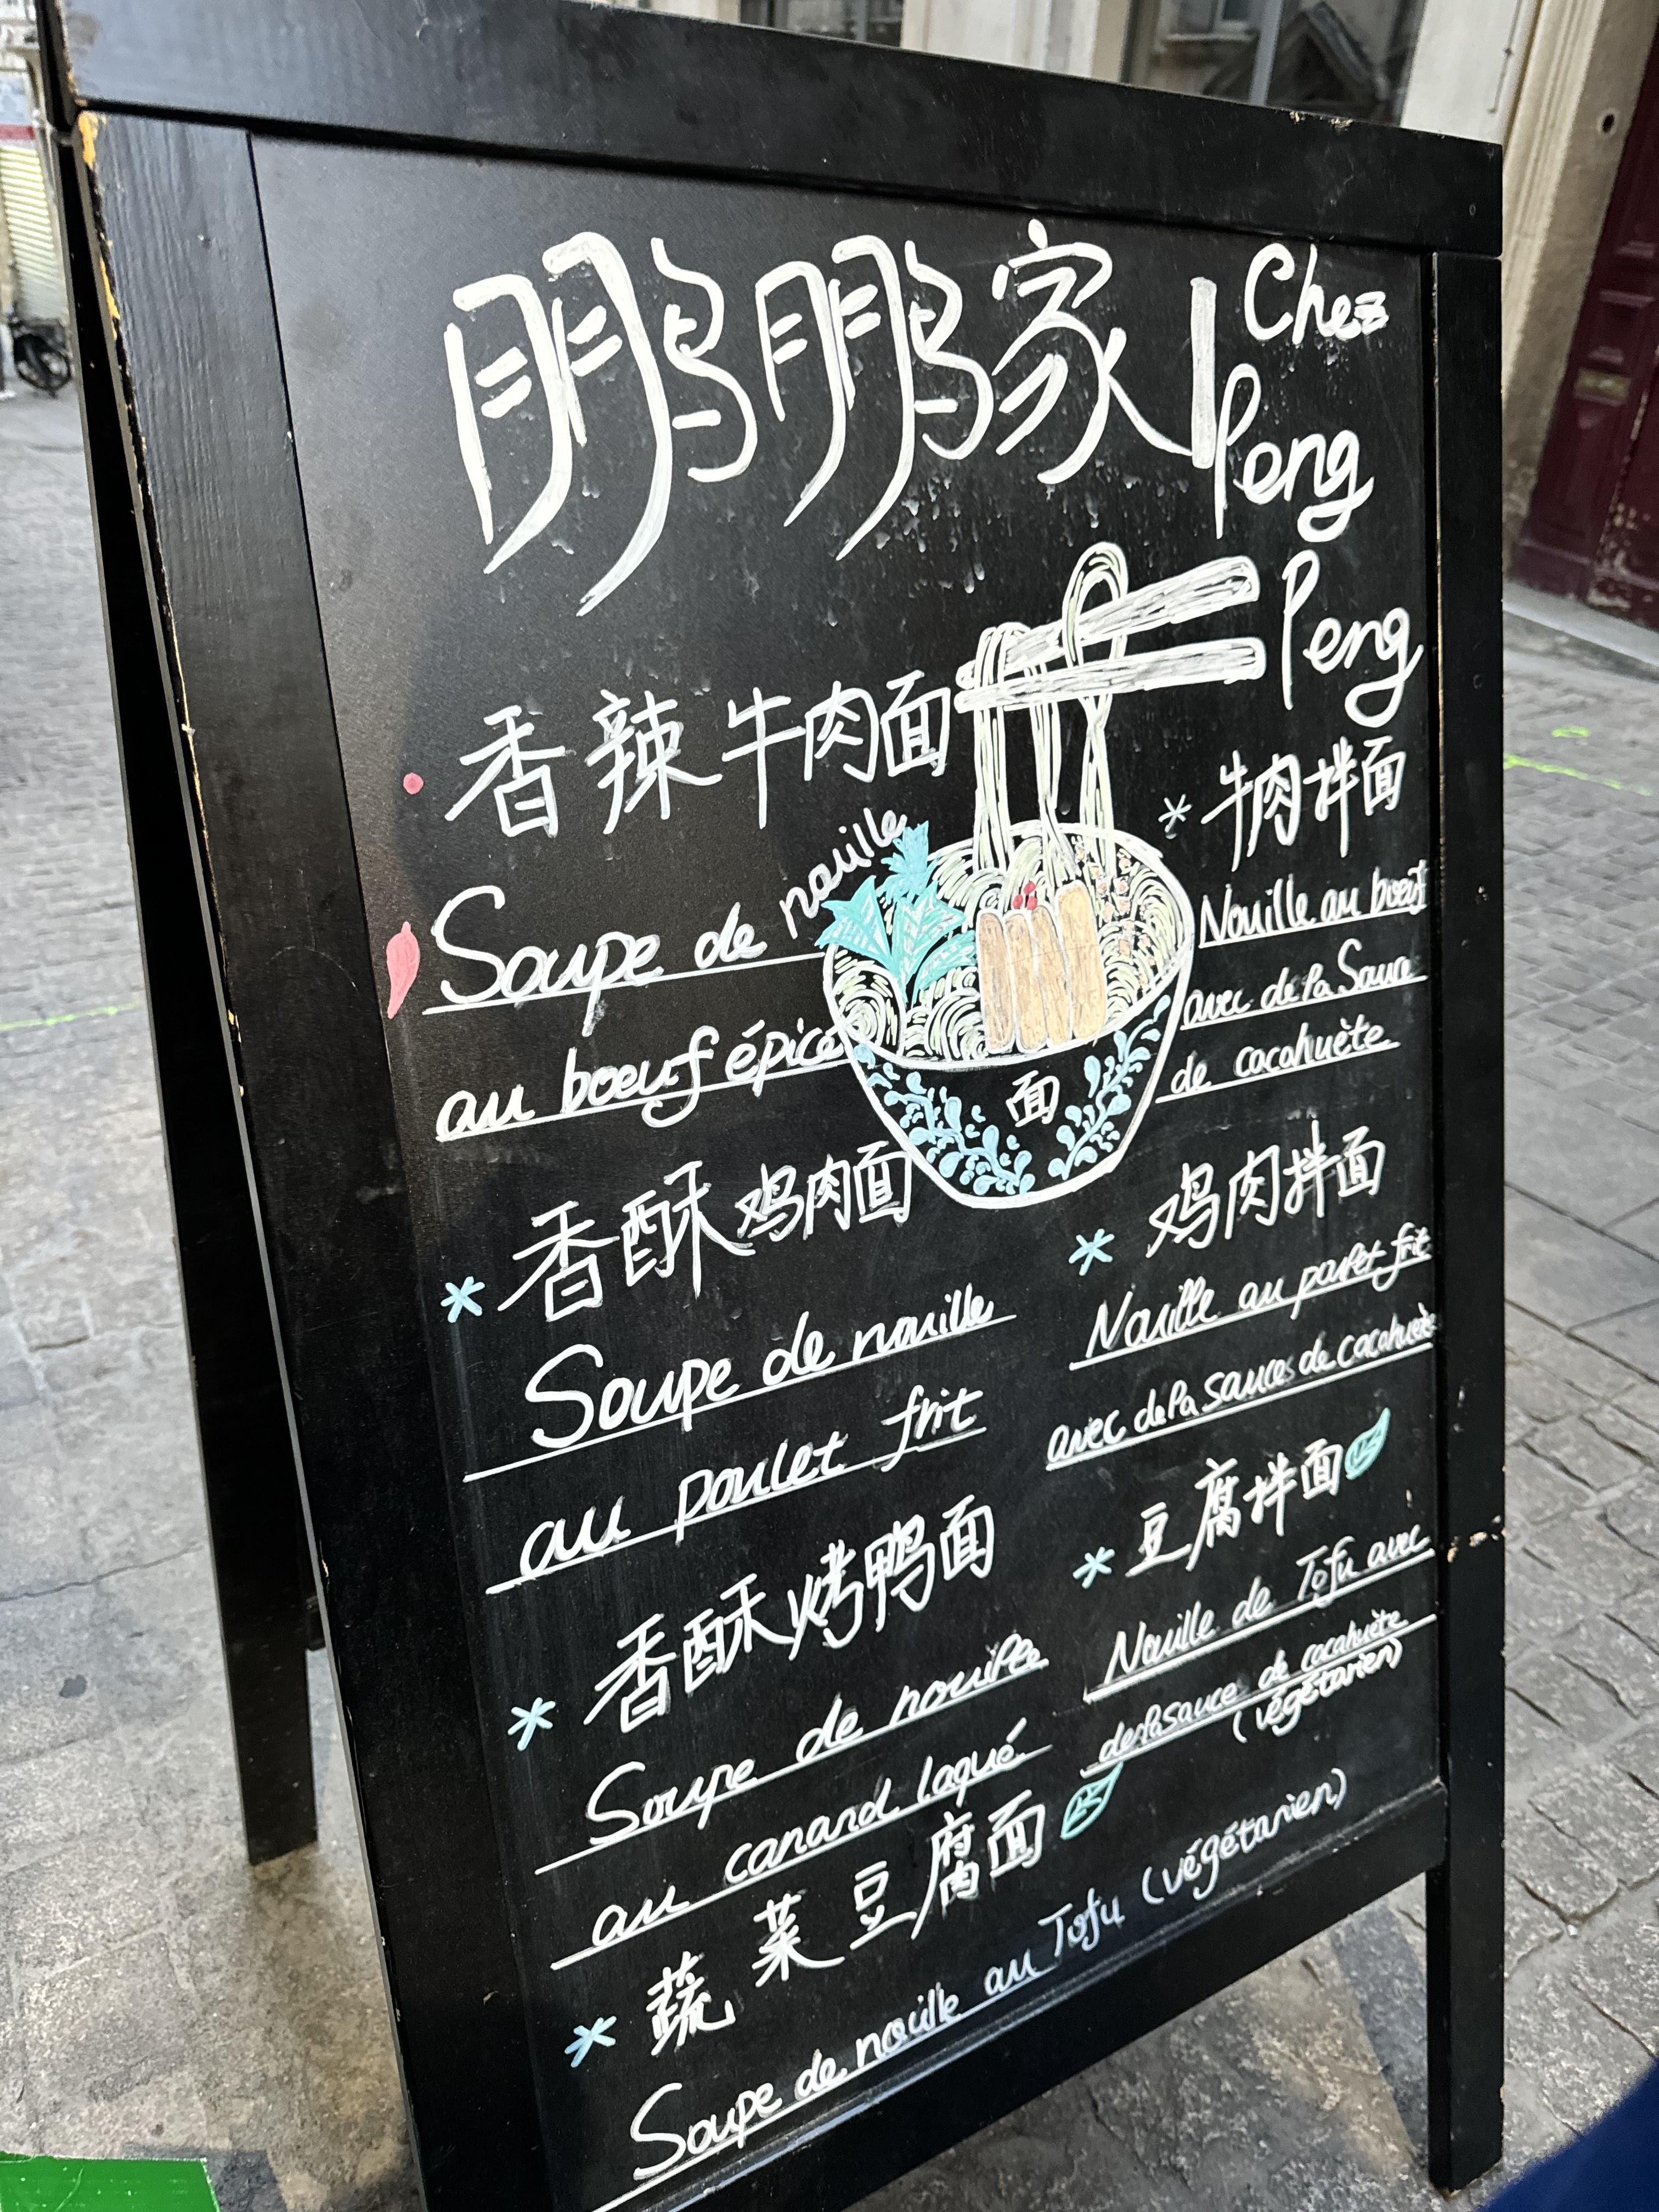 鹏鹏家
Chez
Peng
Peng
香辣牛肉面
Soupe de nouille
au boeuf épicé
香酥鸡肉面
Soupe de nouille
au poulet frit
香酥烤鸭面
Soupe de nouille
au canard laqué
蔬菜豆腐面
Soupe de nouille au Tofu (végétarien)
面
牛肉拌面
Nouille au boeuf
avec de la Sauce
de cacahuète
鸡肉拌面
Nouille au poulet frit
avec de la sauces de cacahuète
豆腐拌面
Nouille de Tofu avec
de la sauce de cacahuète
(végétarien)